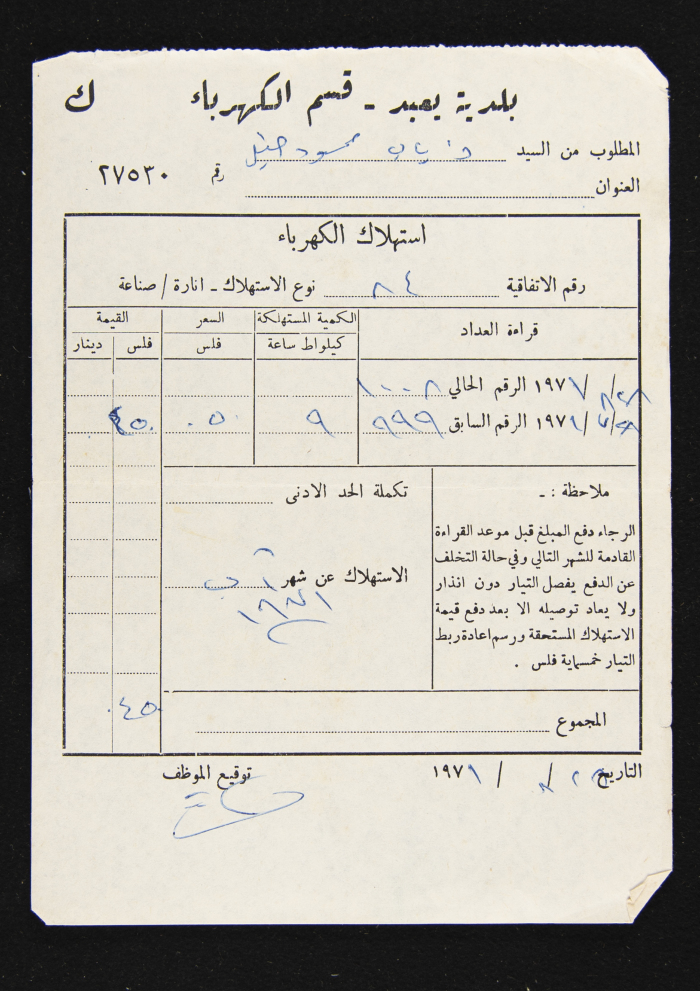 بلدية يعبد - قسم الكهرباء ك
المطلوب من السيد ذياب محمود
العنوان رقم ٢٧٥٣٠
استهلاك الكهرباء
رقم الاتفاقية ٨٤ نوع الاستهلاك - انارة / صناعة
قراءة العداد الكمية المستهلكة السعر القيمة
كيلواط ساعة فلس فلس دينار
٢٨/٨/١٩٧١ الرقم الحالي ١٠٠٨
١٩٧١ الرقم السابق ٩٩٩ ٩ ٠٥٠ ٤٥٠
ملاحظة : -
الرجاء دفع المبلغ قبل موعد القراءة
القادمة للشهر التالي وفي حالة التخلف
عن الدفع يفصل التيار دون انذار
ولا يعاد توصيله الا بعد دفع قيمة
الاستهلاك المستحقة ورسم اعادة ربط
التيار خمسماية فلس .
تكملة الحد الادنى
الاستهلاك عن شهر آب
١٩٧١
المجموع ٤٥٠
التاريخ ٢٨/٨/١٩٧١ توقيع الموظف